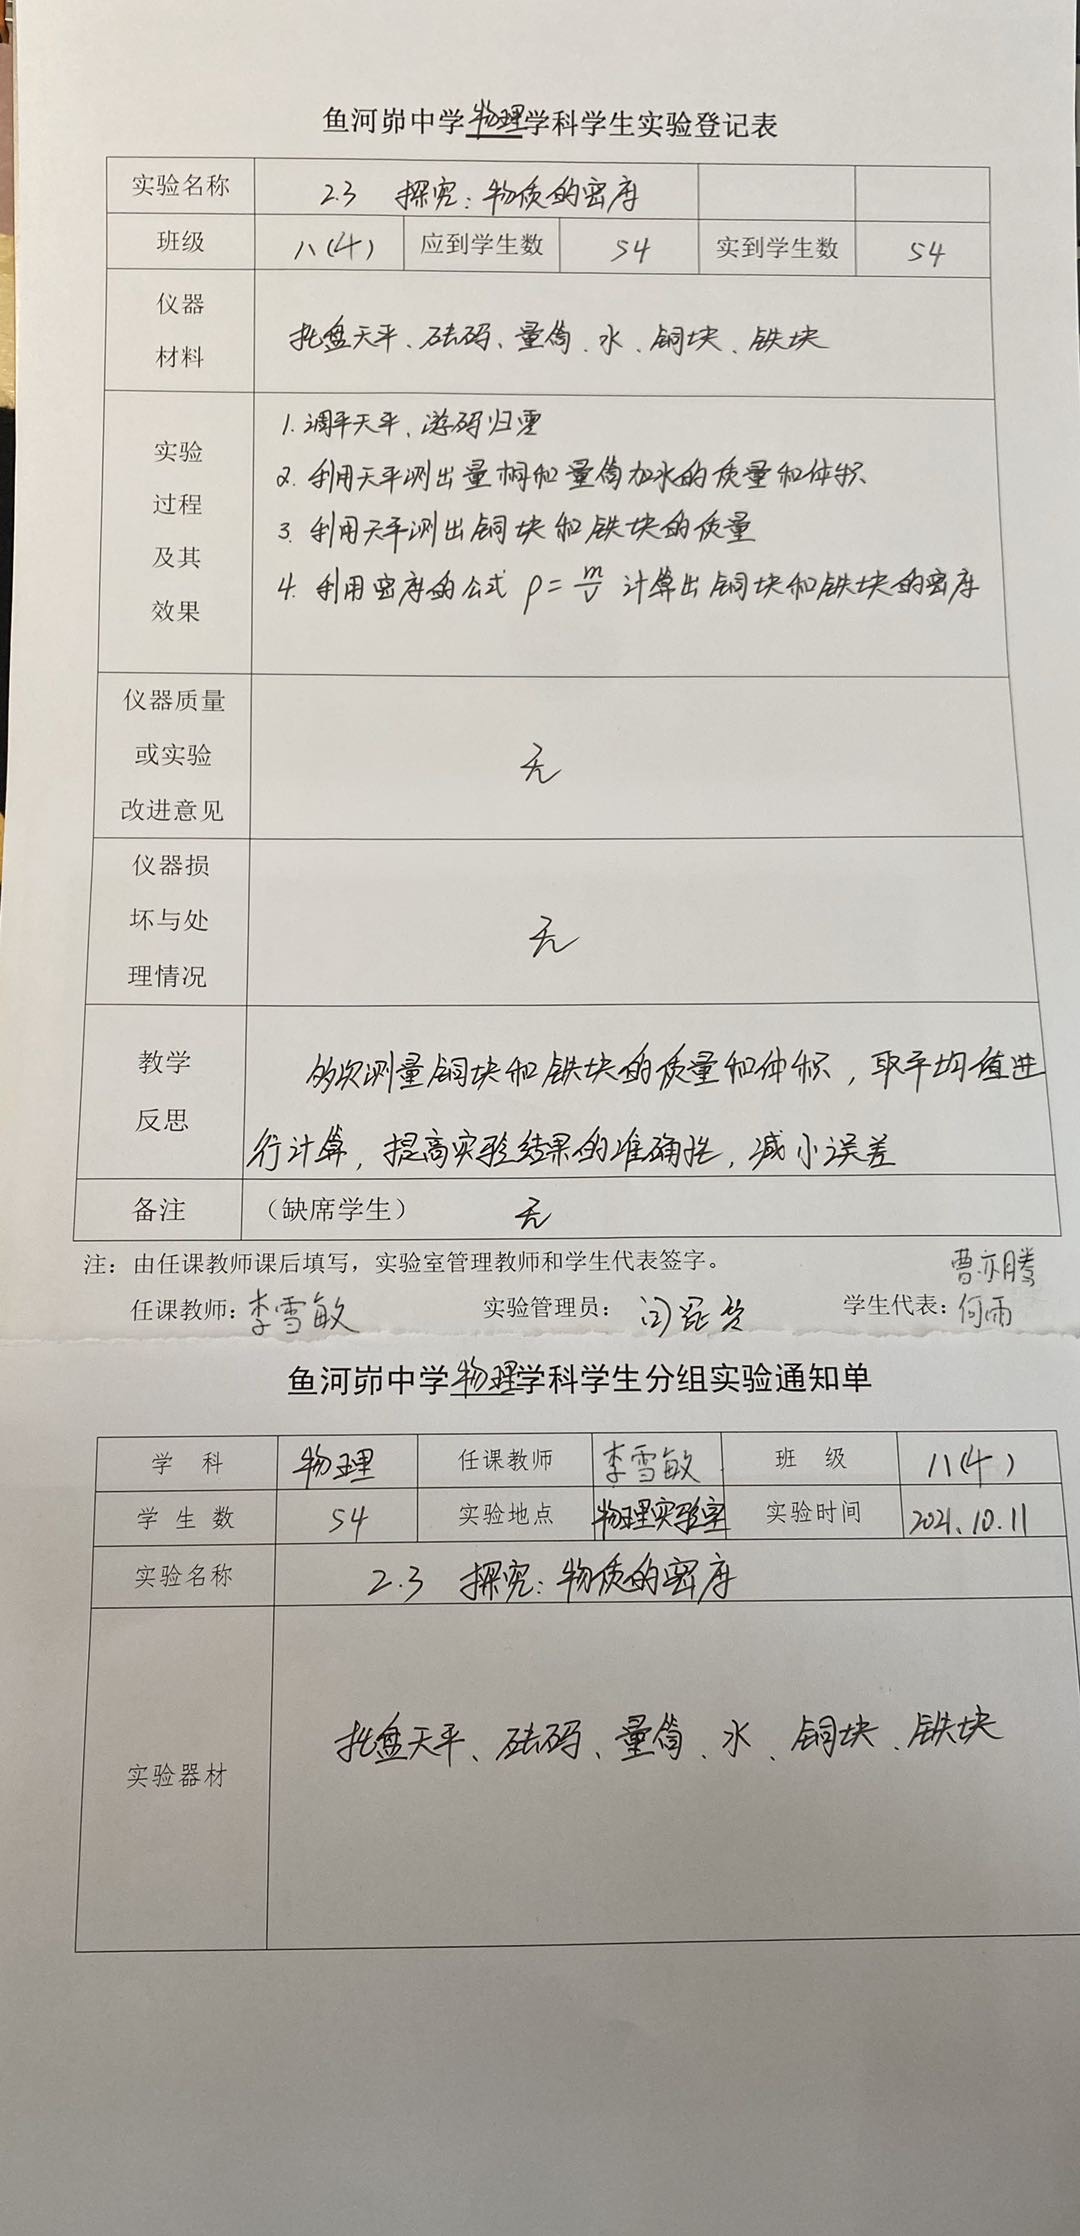 鱼河峁中学物理学科学生实验登记表
实验名称 2.3 探究：物质的密度
班级 八(4) 应到学生数 54 实到学生数 54
仪器
材料
托盘天平、砝码、量筒、水、铜块、铁块
实验
过程
及其
效果
1. 调平天平、游码归零
2. 利用天平测出量桐和量筒加水的质量和体积
3. 利用天平测出铜块和铁块的质量
4. 利用密度的公式 ρ=m/v 计算出铜块和铁块的密度
仪器质量
或实验
改进意见
无
仪器损
坏与处
理情况
无
教学
反思
多次测量铜块和铁块的质量和体积，取平均值进
行计算，提高实验结果的准确性，减小误差
备注 （缺席学生） 无
注：由任课教师课后填写，实验室管理教师和学生代表签字。
曹亦腾
任课教师：李雪敏 实验管理员： 学生代表：何雨
鱼河峁中学物理学科学生分组实验通知单
学科 物理 任课教师 李雪敏 班级 八(4)
学生数 54 实验地点 物理实验室 实验时间 2021.10.11
实验名称 2.3 探究：物质的密度
实验器材 托盘天平、砝码、量筒、水、铜块、铁块